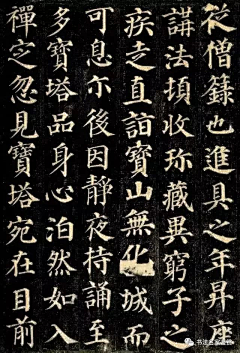 從僧籙也進具之年昇座
講法頃收珎藏異窮子之
疾走直詣寶山無化城而
可息尒後因靜夜持誦至
多寶塔品身心泊然如入
禪定忽見寶塔宛在目前